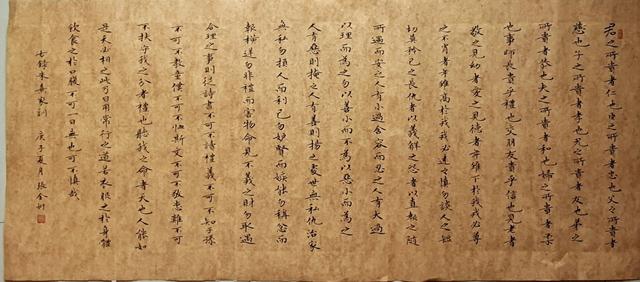 君之所貴者仁也臣之所貴者忠也父之所貴者
慈也子之所貴者孝也兄之所貴者友也弟之
所貴者恭也夫之所貴者和也婦之所貴者柔
也事師長貴乎禮也交朋友貴乎信也見老者
敬之見幼者愛之見德者年雖下於我我必尊
之不肖者年雖高於我我必遠之慎勿談人之短
切莫矜己之長仇者以義解之怨者以直報之隨
所遇而安之人有小過含容而忍之人有大過
以理而為之勿以善小而不為以惡小而為之
人有惡則掩之人有善則揚之處世無私仇治家
無私勿損人而利己勿妒賢而嫉能勿稱忿而
報橫逆勿非禮而害物命見不義之財勿取遇
合理之事則從詩書不可不讀禮義不可不知子孫
不可不教童僕不可不恤斯文不可不敬患難不可
不扶守我之分者禮也聽我之命者天也人能如
是天必相之此乃日用常行之道若衣服之於身體
飲食之於口腹不可一日無也可不慎哉
右錄朱熹家訓 庚子夏月 張